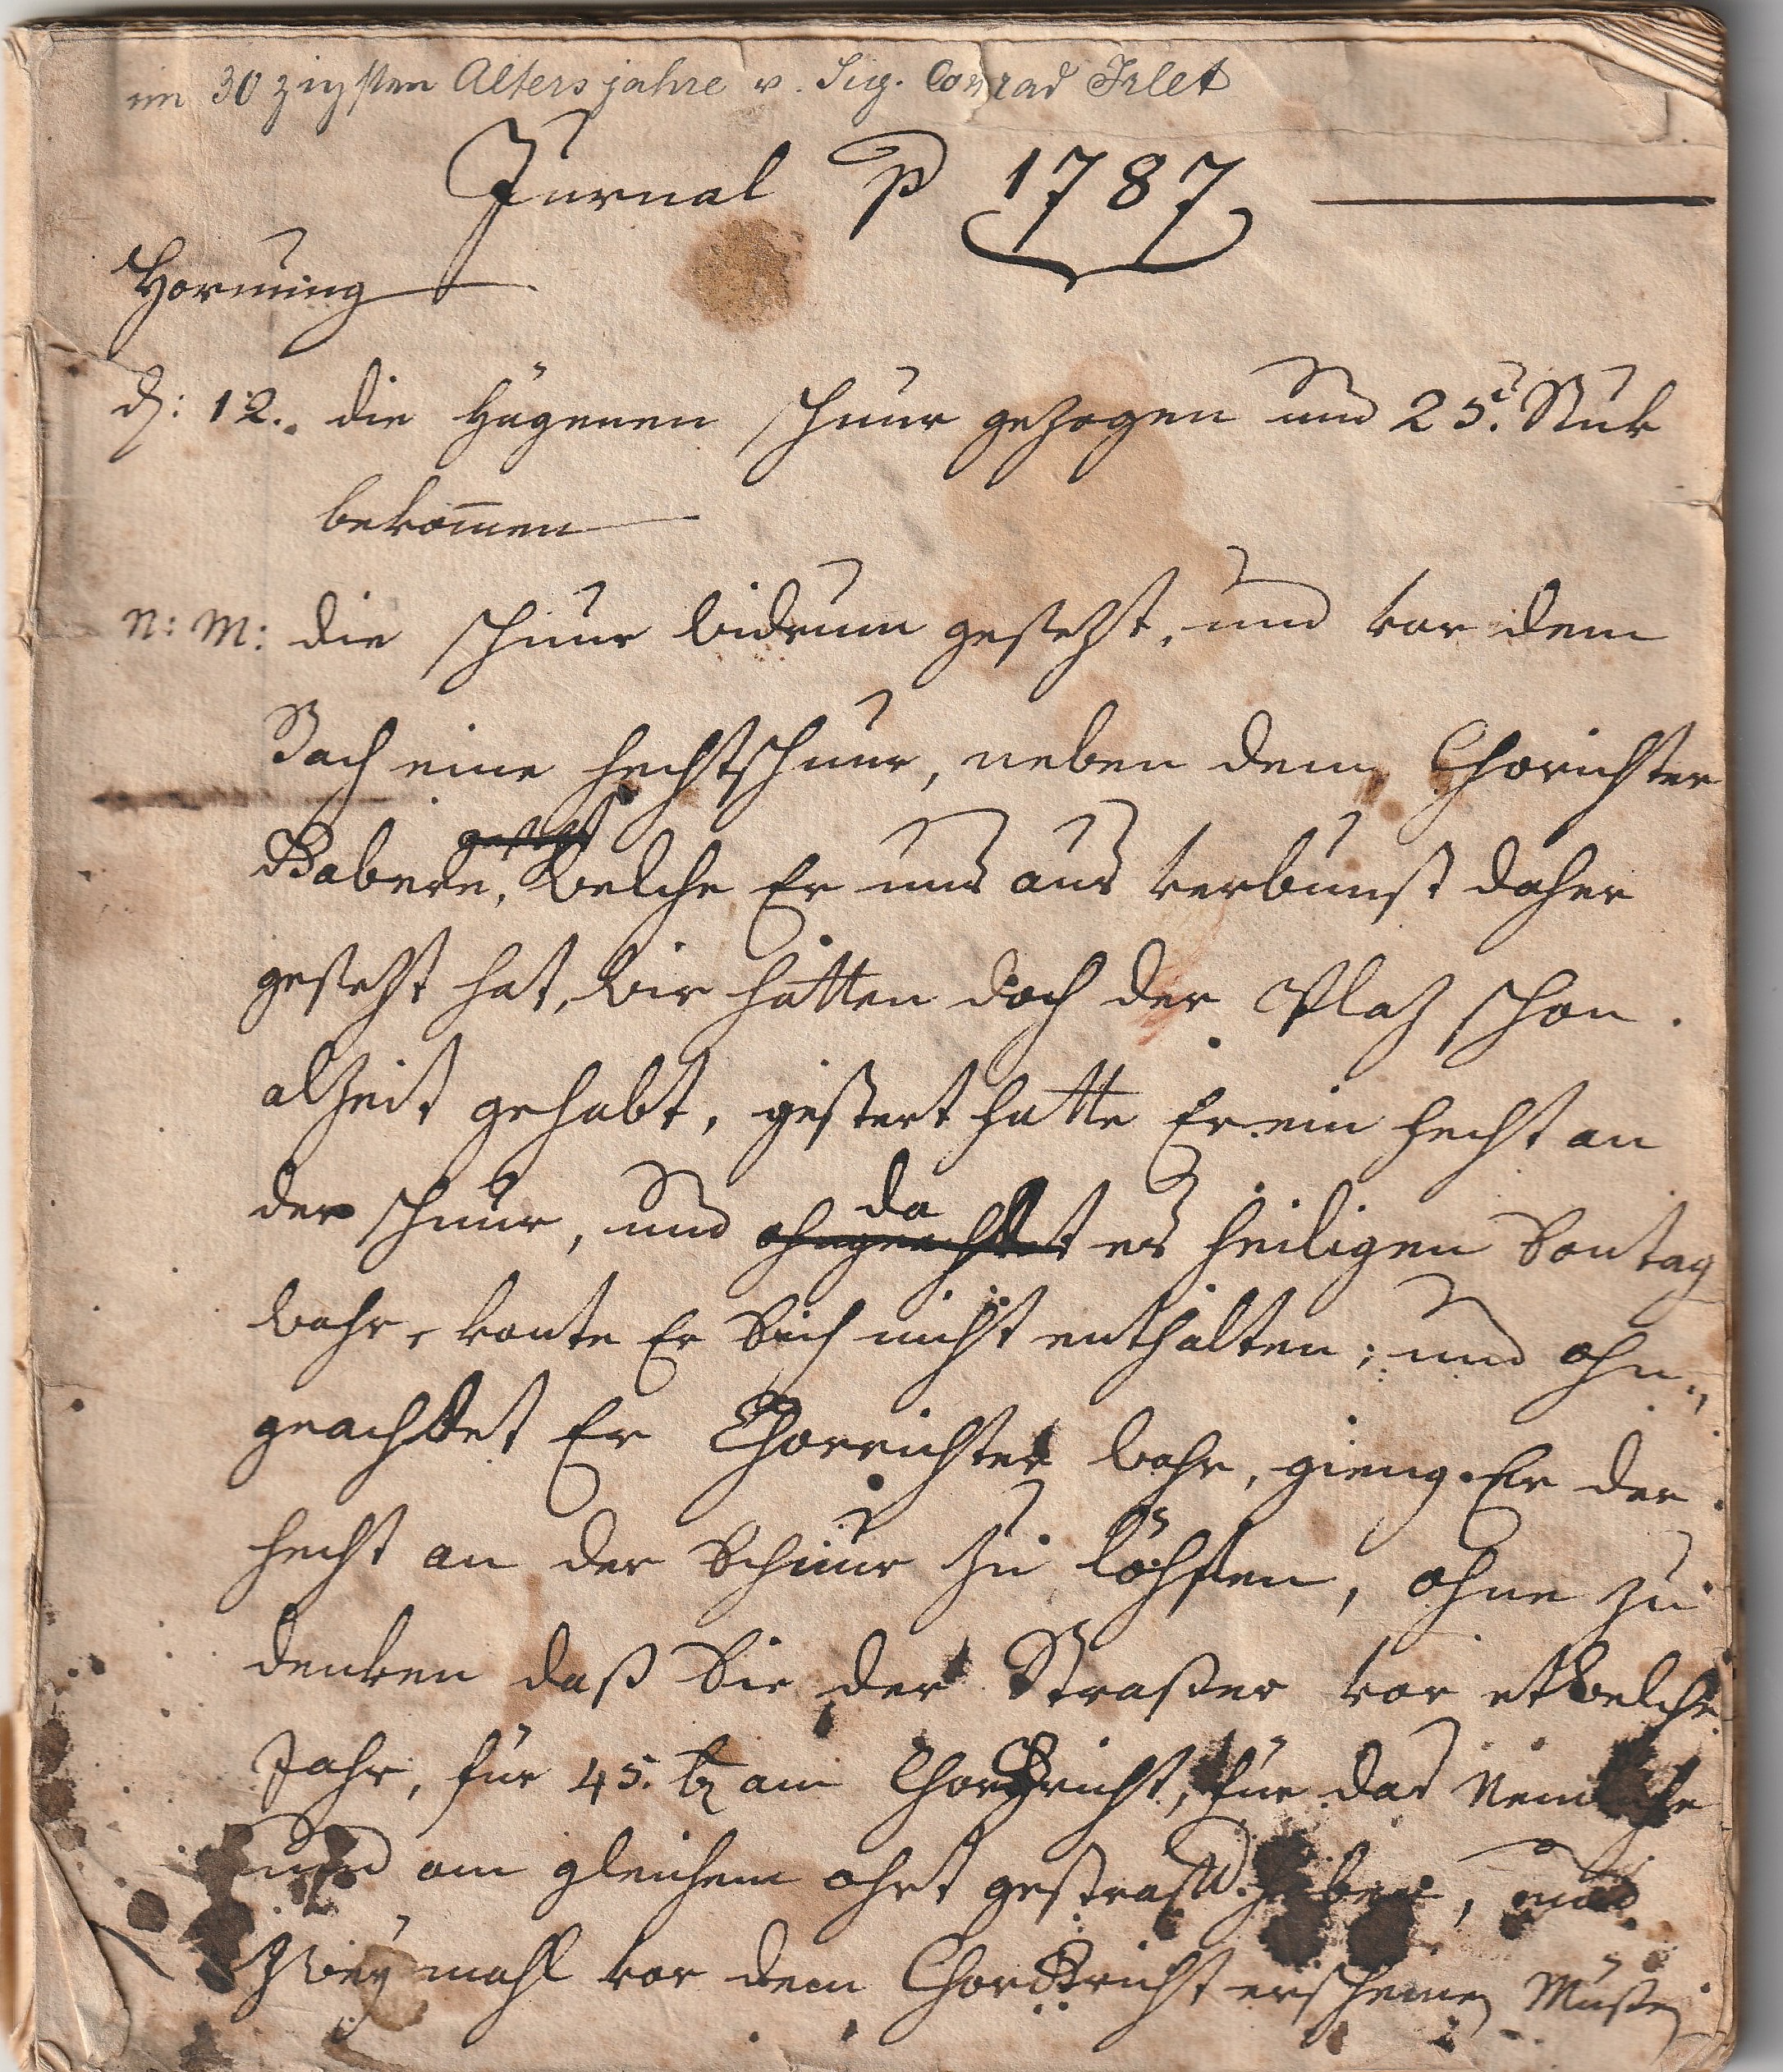 im 30 zigsten Altersjahre v. Sig. Conrad Irlet
Jurnal p 1787
Hornung
d: 12. die Hägenen schnur gezogen und 25. Stuk
bekom̅en
N: M: die schnur widrum gesetzt, und vor dem
Bach eine hechtschnur, neben dem Chorichter
welche Er uns aus verbunst daher
gesetzt hat, wir hätten doch der Platz schon
alzeit gehabt, gistert hatte Er ein hecht an
der schnur, und da
ohngeachtet es heiligen Sontag
wahr, konte Er Sich nicht enthalten; und ohn„
geachtet Er Chorrichter wahr, gieng Er der
hecht an der Schnur zu löhsen, ohne zu
denken daß Sie der Straßer vor etwelche
Jahr, für 45. bz am Chorgricht, für das Nemliche
und am gleichem ohrt gestraft haben, und
Zweÿ mahl vor dem Chorgricht erscheinen Müßen